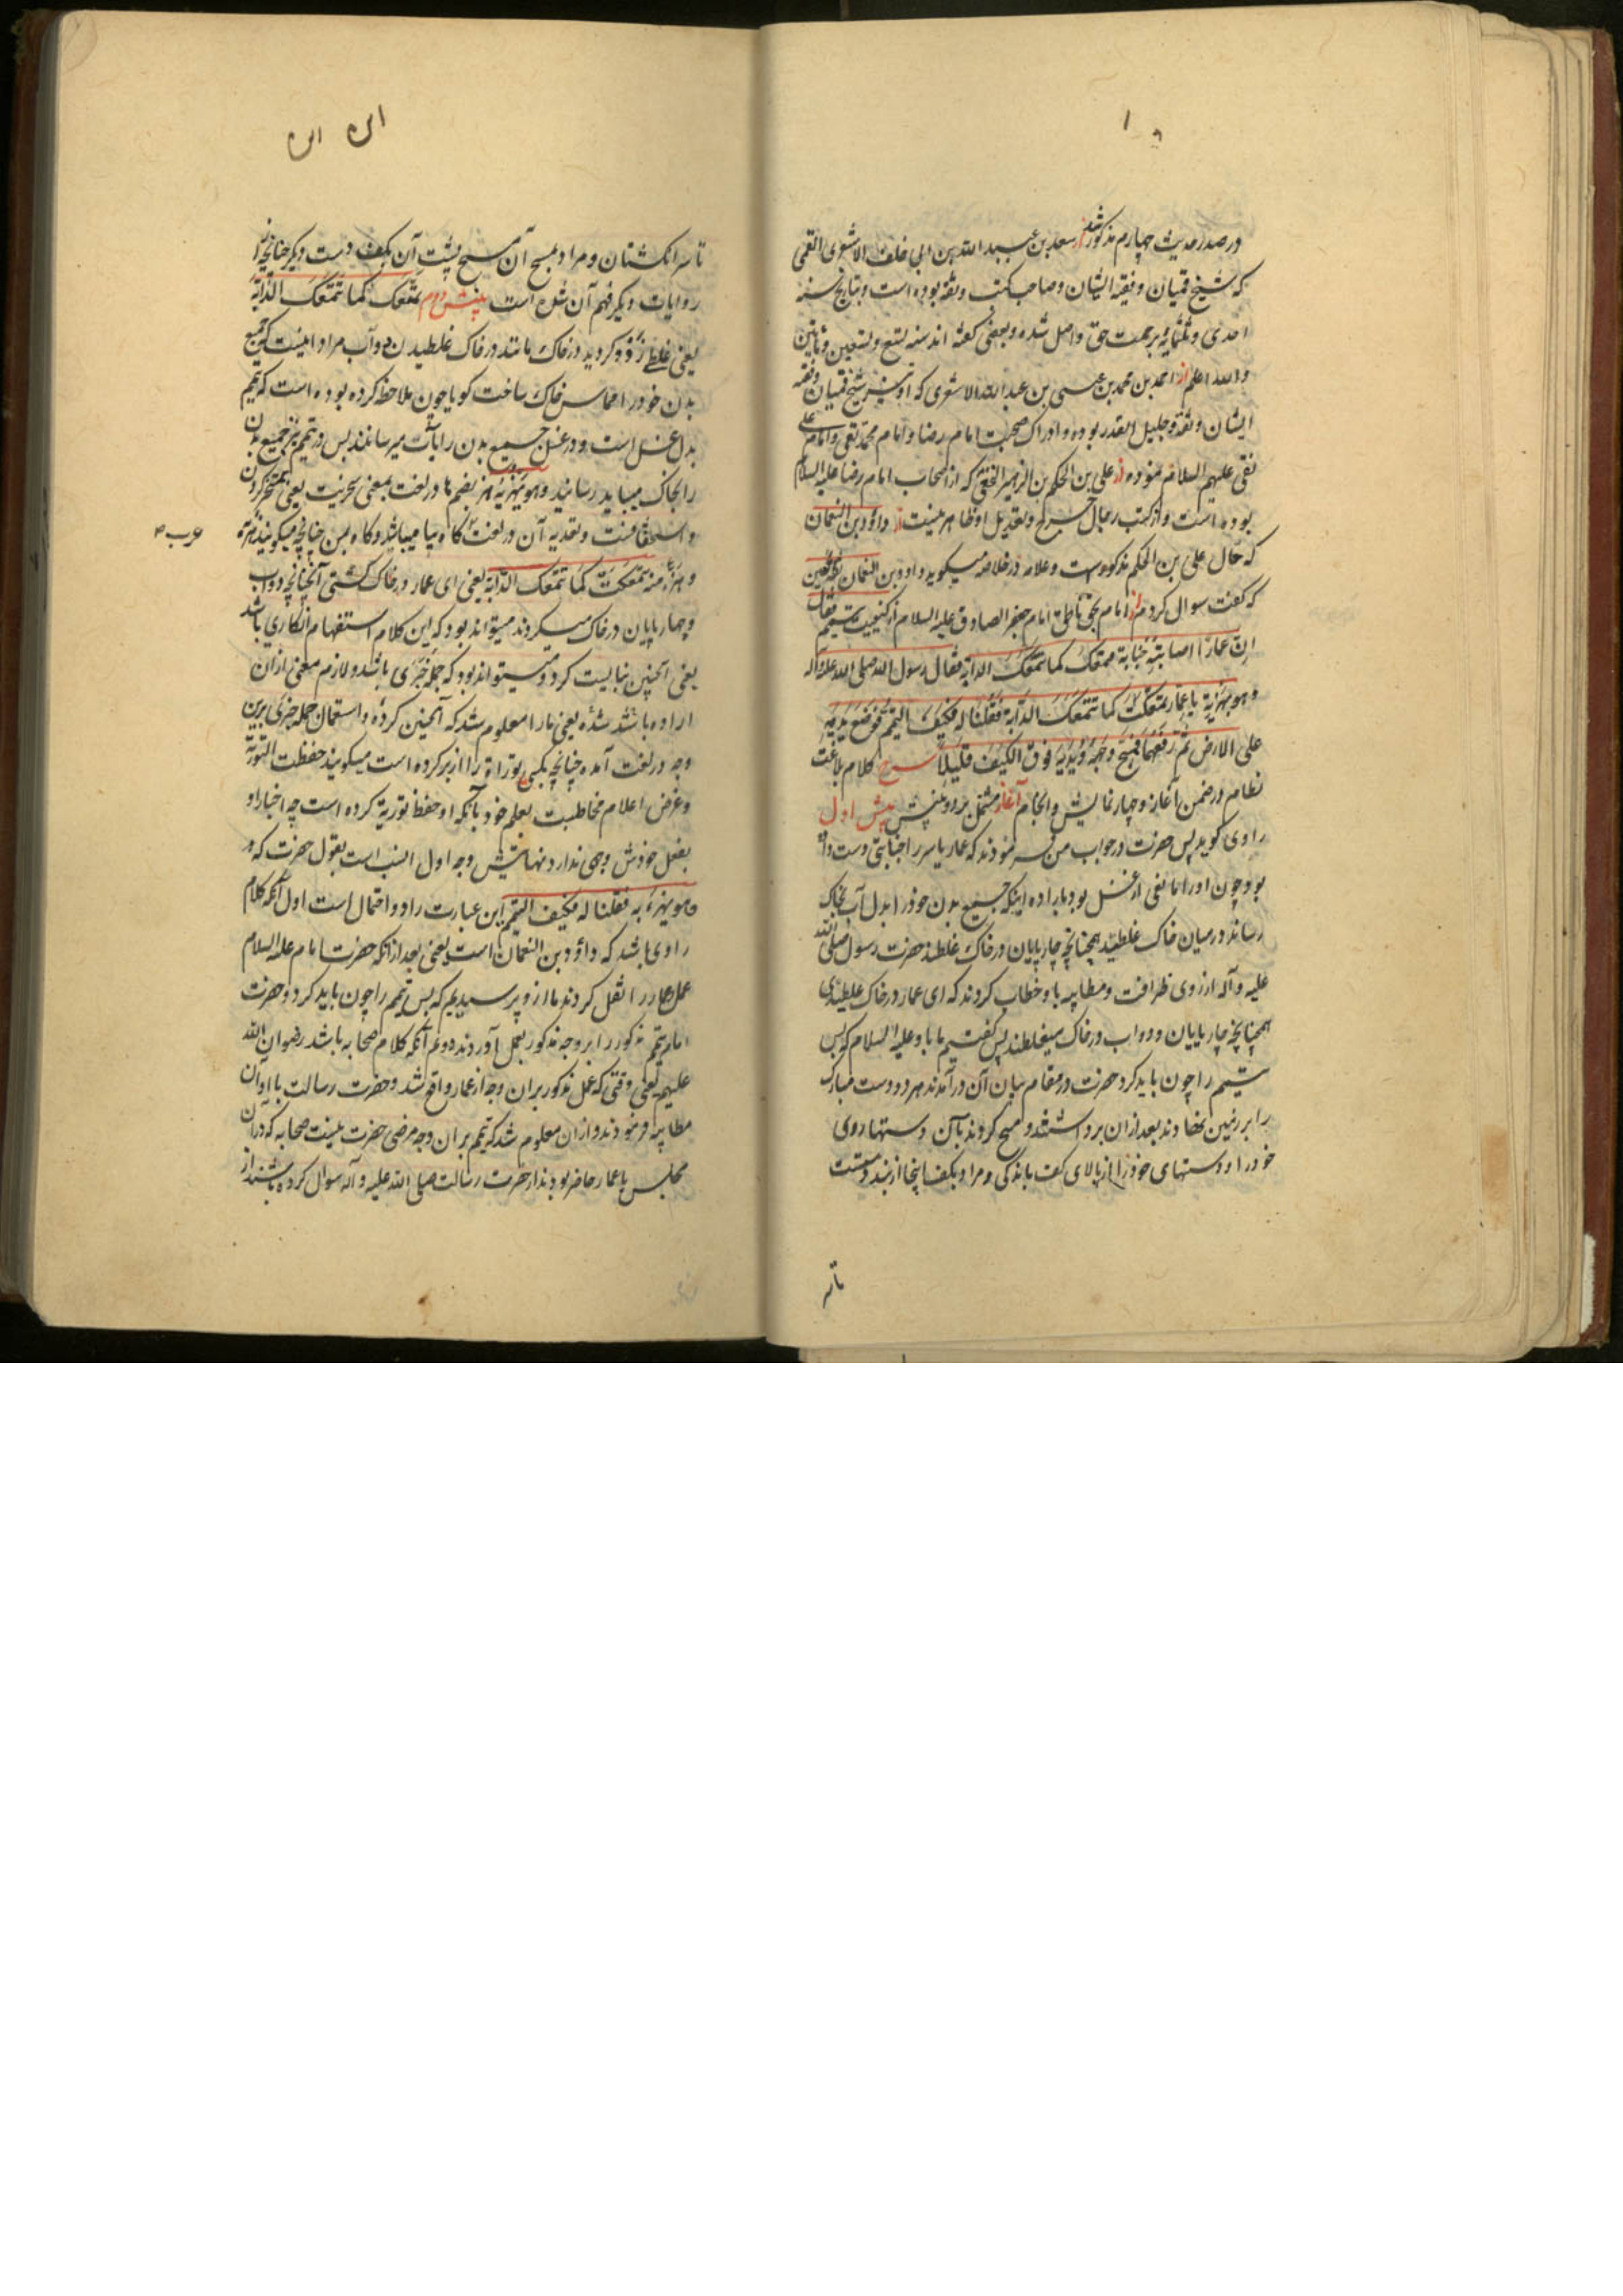 در صدر حدیث چهارم مذکور شد از سعد بن عبد الله بن ابی خلف الاشعری القمی
که شیخ قمیان و فقیه ایشان و صاحب کتب و ثقه بوده است و بتاریخ سنه
احدی و ثلثمایه برحمت حق واصل شده و بعضی گفته اند سنه تسع و تسعین و مأتین
والله اعلم از احمد بن محمد بن عیسی بن عبد الله الاشعری که او نیز شیخ قمیان و فقیه
ایشان و ثقه و جلیل القدر بوده و ادراک صحبت امام رضا و امام محمد تقی و امام علی
نقی علیهم السلام نموده از علی بن الحکم بن الزبیر النخعی که از اصحاب امام رضا علیه السلام
بوده است و از کتب رجال جرح و تعدیل او ظاهر نیست از داود بن النعمان
که حال علی بن الحکم مذکور است و علامه در خلاصه میگوید داود بن النعمان ثقة عین
که گفت سوال کردم از امام بحق ناطق امام جعفر الصادق علیه السلام از کیفیت تیمم فقال
ان عمارا اصابته جنابة فتمعک کما تتمعک الدابة فقال رسول الله صلی الله علیه وآله
وهو یهزئ به یا عمار تمعکت کما تتمعک الدابة فقلنا له فکیف التیمم فوضع یدیه
علی الارض ثم رفعهما فمسح وجهه ویدیه فوق الکف قلیلا شرح کلام بلاغت
نظام در ضمن آغاز و چهار نمایش و انجام آغاز مشتمل بر دو بینش بینش اول
راوی گوید پس حضرت در جواب من فرمودند که عمار یاسر را جنابتی دست داده
بود چون او را مانعی از غسل بود باراده اینکه جمیع بدن خود را بدل آب بخاک
رساند در میان خاک غلطید همچنانچه چارپایان در خاک غلطند حضرت رسول صلی الله
علیه و آله از روی ظرافت و مطایبه باو خطاب کردند که ای عمار در خاک غلطیدی
همچنانچه چارپایان و دواب در خاک میغلطند پس گفتیم ما باو علیه السلام که پس
تیمم را چون باید کرد حضرت در مقام بیان آن درآمدند هر دو دست مبارک
را بر زمین نهادند بعد از ان برداشتند و مسح کردند بآن دستها روی
خود را و دستهای خود را از بالای کف باندکی و مراد بکف اینجا از بند دستست
تا سر
تا سر انگشتان و مراد بمسح آن مسح پشت آن بکف دست دیگر چنانچه از
روایات دیگر فهم آن شده است بینش دوم تمعک کما تتمعک الدابة
یعنی غلط زده گردید در خاک مانند در خاک غلطیدن دواب مراد اینست که جمیع
بدن خود را مماس خاک ساخت گویا چون ملاحظه کرده بوده است که تیمم
بدل غسل است و در غسل جمیع بدن را بآب میرسانند پس در تیمم نیز جمیع بدن
را بخاک میباید رسانید وهو یهزئ به هزء بضم ها در لغت بمعنی سخریت یعنی تمسخر کردن
و استخفافست و تعدیه آن در لغت گاه ببا میباشد و گاه بمن چنانچه میگویند هزء به
و هزء منه تمعکت کما تتمعک الدابة یعنی ای عمار در خاک گشتی آنچنانچه دواب
و چهارپایان در خاک میگردند میتواند بود که این کلام استفهام انکاری باشد
یعنی آنچنین نبایست کرد و میتواند بود که جمله خبری باشد و لازم معنی از ان
اراده باشد شده یعنی ما را معلوم شد که آنچنین کرده و استعمال جمله خبری برین
وجه در لغت آمده چنانچه بکسی توراة را از بر کرده است میگویند حفظت التوریة
و غرض اعلام مخاطبست بعلم خود بآنکه او حفظ توریة کرده است چه اخبار او
بفعل خودش وجهی ندارد نهایتش وجه اول انسب است بقول حضرت که و
هو یهزئ به فقلنا له فکیف التیمم این عبارت را دو احتمال است اول آنکه کلام
راوی باشد که داود بن النعمان است یعنی بعد از انکه حضرت امام علیه السلام
عمل عمار را نقل کردند ما ازو پرسیدیم که پس تیمم را چون باید کرد و حضرت
امام تیمم مذکور را بر وجه مذکور بعمل آوردند دوم آنکه کلام صحابه باشد رضوان الله
علیهم یعنی وقتی که عمل مذکور بران وجه از عمار واقع شد و حضرت رسالت با او آن
مطایبه فرمودند و ازان معلوم شد که تیمم بر ان وجه مرضی حضرت نیست صحابه که در ان
مجلس با عمار حاضر بودند از حضرت رسالت صلی الله علیه و آله سوال کرده باشند از